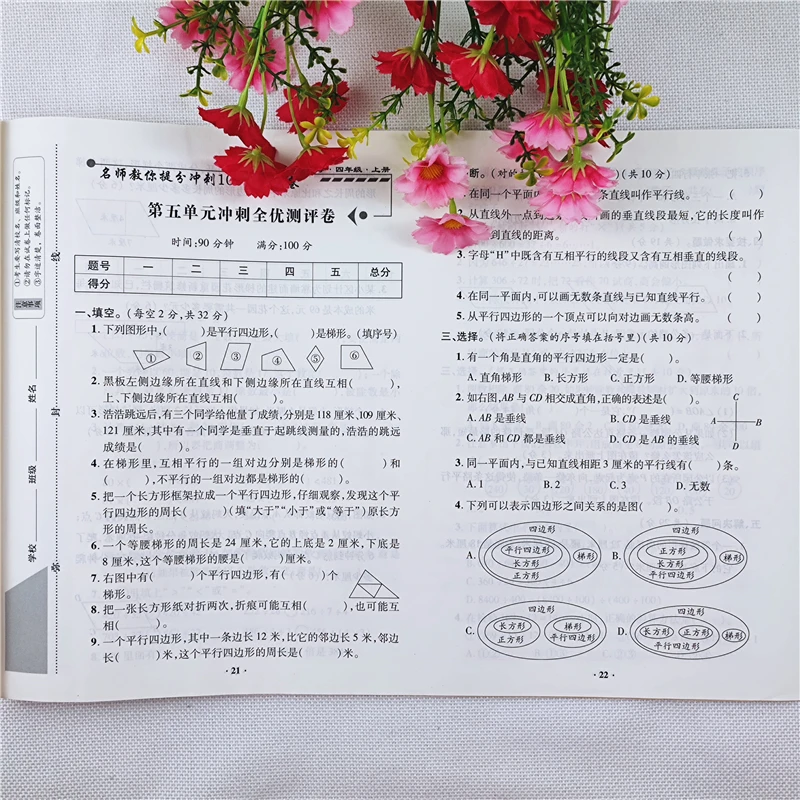 ①考生要写清校名、班级和姓名。
②请勿在试卷上做任何标记。
③字迹清楚,卷面整洁。
注意事项
学校
班级
姓名
弥
封
线
名师教你提分冲刺10
四年级·上册
第五单元冲刺全优测评卷
时间:90分钟 满分:100分
题号 一 二 三 四 五 总分
得分
一、填空。(每空2分,共32分)
1.下列图形中,( )是平行四边形,( )是梯形。(填序号)
① ② ③ ④ ⑤ ⑥
2.黑板左侧边缘所在直线和下侧边缘所在直线互相( ),
上、下侧边缘所在直线互相( )。
3.浩浩跳远后,有三个同学给他量了成绩,分别是118厘米、109厘米、
121厘米,其中有一个同学是垂直于起跳线测量的,浩浩的跳远
成绩是( )。
4.在梯形里,互相平行的一组对边分别是梯形的( )和
( ),不平行的一组对边都是梯形的( )。
5.把一个长方形框架拉成一个平行四边形,仔细观察,发现这个平
行四边形的周长( )(填“大于”“小于”或“等于”)原长方
形的周长。
6.一个等腰梯形的周长是24厘米,它的上底是2厘米,下底是
8厘米,这个梯形的腰是( )厘米。
7.右图中有( )个平行四边形,有( )个
梯形。
8.把一张长方形纸对折两次,折痕可能互相( ),也可能互
相( )。
9.一个平行四边形,其中一条边长12米,比它的邻边长5米,邻边
长( )米,这个平行四边形的周长是( )米。
·21·
断。(对的
(共10分)
1.在同一个平面
条直线叫作平行线。 ( )
2.从直线外一点到
画的垂直线段最短,它的长度叫作
到直线的距离。 ( )
3.字母“H”中既含有互相平行的线段又含有互相垂直的线段。
( )
4.在同一平面内,可以画无数条直线与已知直线平行。 ( )
5.从平行四边形的一个顶点可以向对边画无数条高。 ( )
三、选择。(将正确答案的序号填在括号里)(共10分)
1.有一个角是直角的平行四边形一定是( )。
A.直角梯形 B.长方形 C.正方形 D.等腰梯形
2.如右图,AB与CD相交成直角,正确的表述是( )。
A.AB是垂线 B.CD是垂线
C.AB和CD都是垂线 D.CD是AB的垂线
C
A B
D
3.同一平面内,与已知直线相距3厘米的平行线有( )条。
A.1 B.2 C.3 D.无数
4.下列可以表示四边形之间关系的是图( )。
A. 四边形 平行四边形 长方形 正方形 梯形
B. 四边形 正方形 长方形 平行四边形 梯形
C. 四边形 长方形 正方形 梯形 平行四边形
D. 四边形 长方形 正方形 平行四边形 梯形
·22·